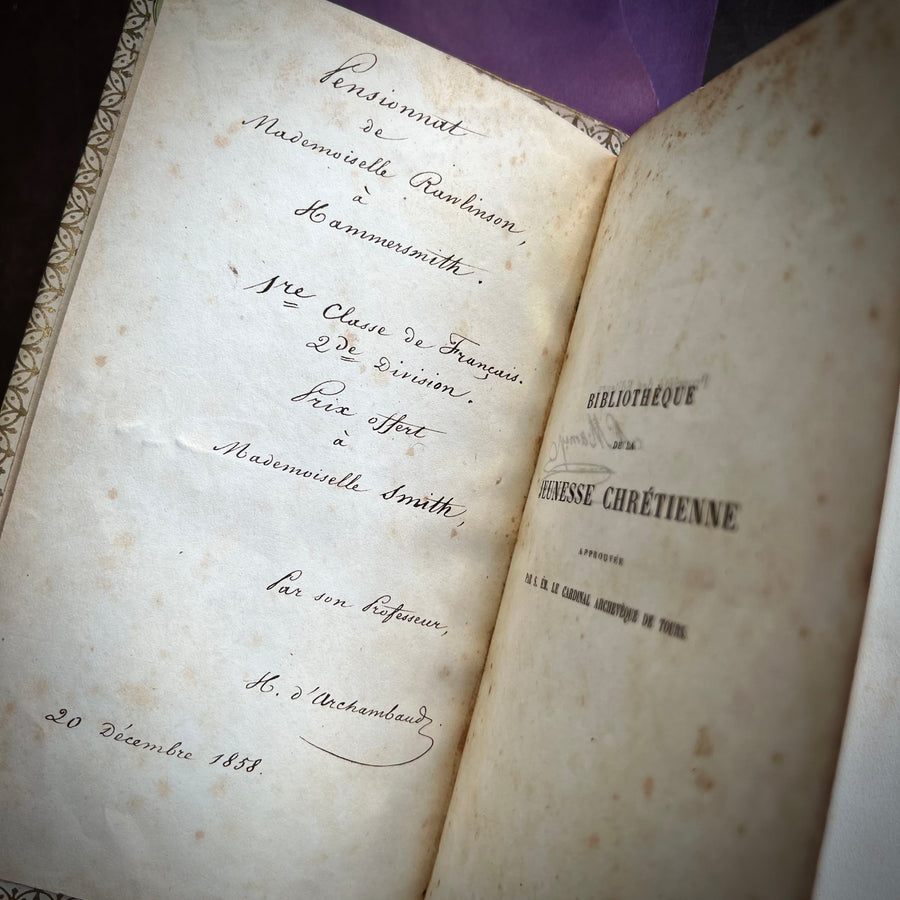 Pensionnat
de
Mademoiselle Rawlinson,
à
Hammersmith.
1re Classe de Français.
2de Division.
Prix offert
à
Mademoiselle Smith,
Par son Professeur,
H. d'Archambaud
20 Décembre 1858.
BIBLIOTHÈQUE
DE LA
JEUNESSE CHRÉTIENNE
APPROUVÉE
PAR S. ÉM. LE CARDINAL ARCHEVÊQUE DE TOURS.